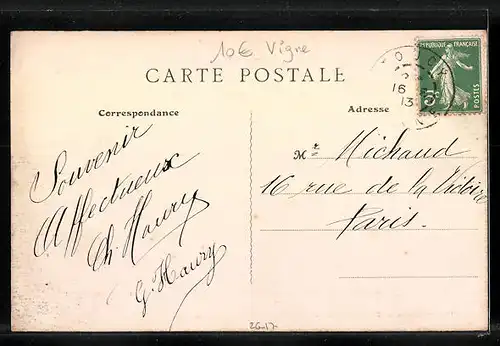 10€ Vigne
CARTE POSTALE
Correspondance
Adresse
REPUBLIQUE FRANÇAISE
POSTES
5c
16
13
Souvenir
Affectueux
Ch. Haury
G. Haury
Mr Michaud
16 rue de la Victoire
Paris.
26-17